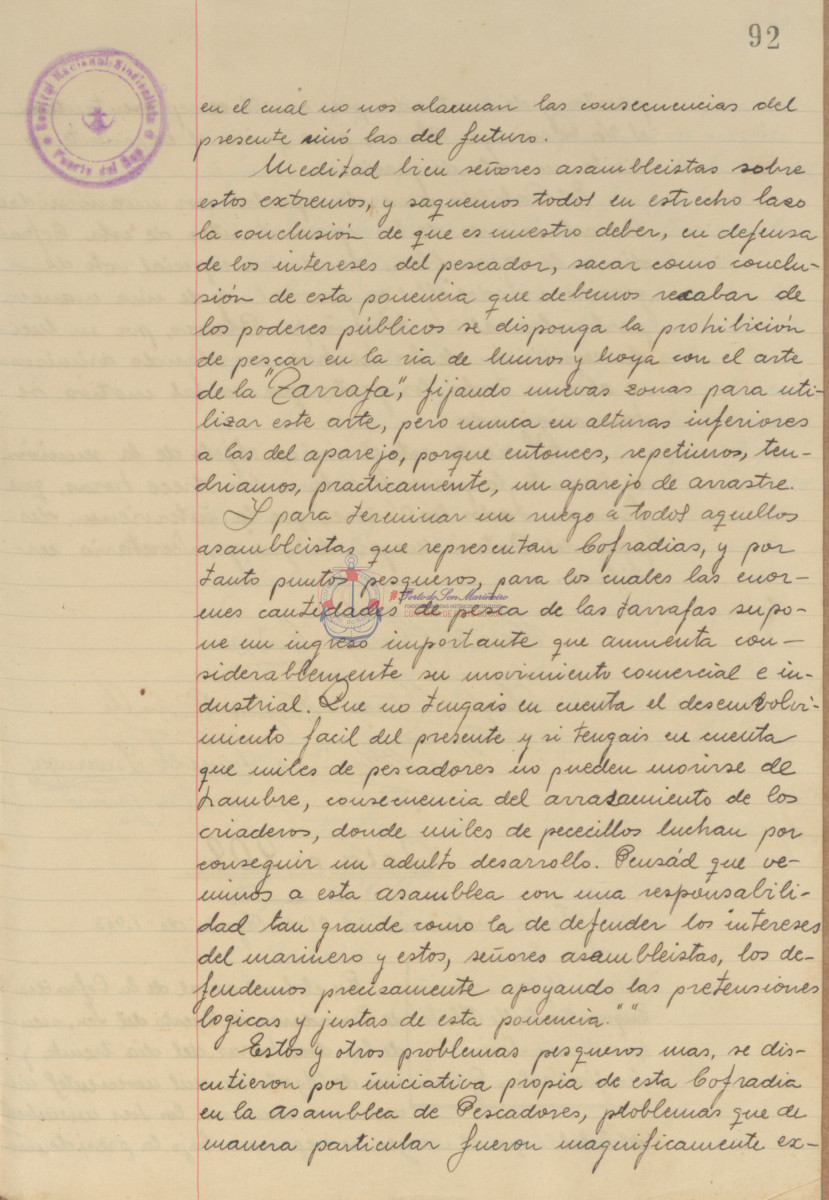 92
Central Nacional-Sindicalista
Puerto del Son
en el cual no nos alarman las consecuencias del
presente sinó las del futuro.
Meditad bien señores asambleistas sobre
estos extremos, y saquemos todos en estrecho lazo
la conclusión de que es nuestro deber, en defensa
de los intereses del pescador, sacar como conclu-
sión de esta ponencia que debemos recabar de
los poderes públicos se disponga la prohibición
de pescar en la ria de Muros y Noya con el arte
de la "Tarrafa", fijando nuevas zonas para uti-
lizar este arte, pero nunca en alturas inferiores
a las del aparejo, porque entonces, repetimos, ten-
driamos, practicamente, un aparejo de arrastre.
Y para terminar un ruego a todos aquellos
asambleistas que representan Cofradias, y por
tanto puntos pesqueros, para los cuales las enor-
mes cantidades de pesca de las tarrafas supo-
ne un ingreso importante que aumenta con-
siderablemente su movimiento comercial e in-
dustrial. Que no tengais en cuenta el desenvolvi-
miento facil del presente y si tengais en cuenta
que miles de pescadores no pueden morirse de
hambre, consecuencia del arrasamiento de los
criaderos, donde miles de pececillos luchan por
conseguir un adulto desarrollo. Pensád que ve-
nimos a esta asamblea con una responsabili-
dad tan grande como la de defender los intereses
del marinero y estos, señores asambleistas, los de-
fendemos precisamente apoyando las pretensiones
logicas y justas de esta ponencia.""
Estos y otros problemas pesqueros mas, se dis-
cutieron por iniciativa propia de esta Cofradia
en la Asamblea de Pescadores, problemas que de
manera particular fueron magnificamente ex-
Porto do Son Marineiro